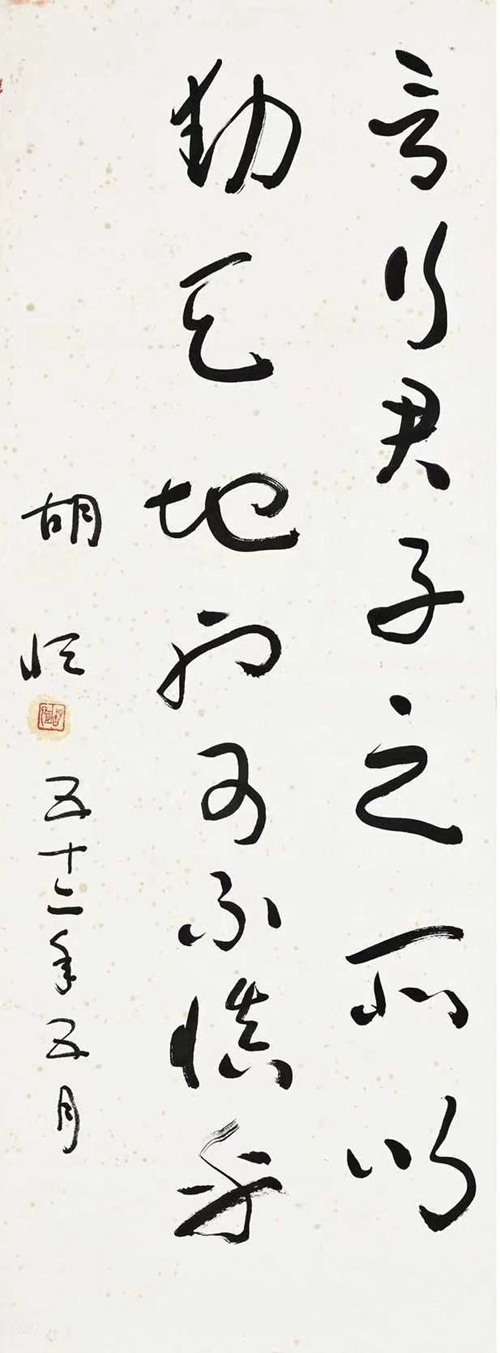 言行君子之所以
動天地也可不慎乎
胡恆 五十二年五月